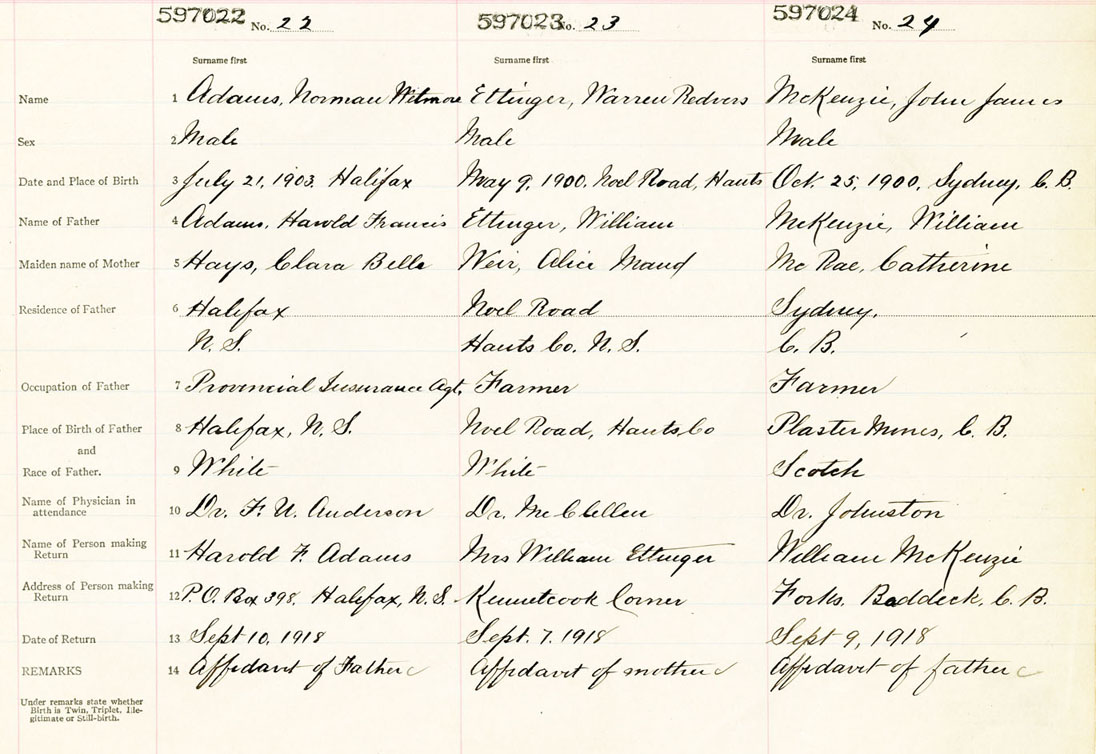 597022 No. 22 597023 No. 23 597024 No. 24
Surname first Surname first Surname first
Name 1 Adams, Norman Wilmore Ettinger, Warren Redvers McKenzie, John James
Sex 2 Male Male Male
Date and Place of Birth 3 July 21, 1903. Halifax May 9, 1900. Noel Road, Hants Oct. 25, 1900, Sydney, C. B.
Name of Father 4 Adams, Harold Francis Ettinger, William McKenzie, William
Maiden name of Mother 5 Hays, Clara Belle Weir, Alice Maud McRae, Catherine
Residence of Father 6 Halifax Noel Road Sydney,
N. S. Hants Co. N. S. C. B.
Occupation of Father 7 Provincial Insurance Agt. Farmer Farmer
Place of Birth of Father 8 Halifax, N. S. Noel Road, Hants Co Plaster Mines, C. B.
and
Race of Father. 9 White White Scotch
Name of Physician in
attendance 10 Dr. F. U. Anderson Dr. McClellen Dr. Johnston
Name of Person making
Return 11 Harold F. Adams Mrs William Ettinger William McKenzie
Address of Person making
Return 12 P.O. Box 398. Halifax, N. S. Kennetcook Corner Forks, Baddeck, C. B.
Date of Return 13 Sept 10, 1918 Sept. 7. 1918 Sept 9, 1918
REMARKS 14 Affidavit of Father Affidavit of mother Affidavit of father
Under remarks state whether
Birth is Twin, Triplet, Ille-
gitimate or Still-birth.